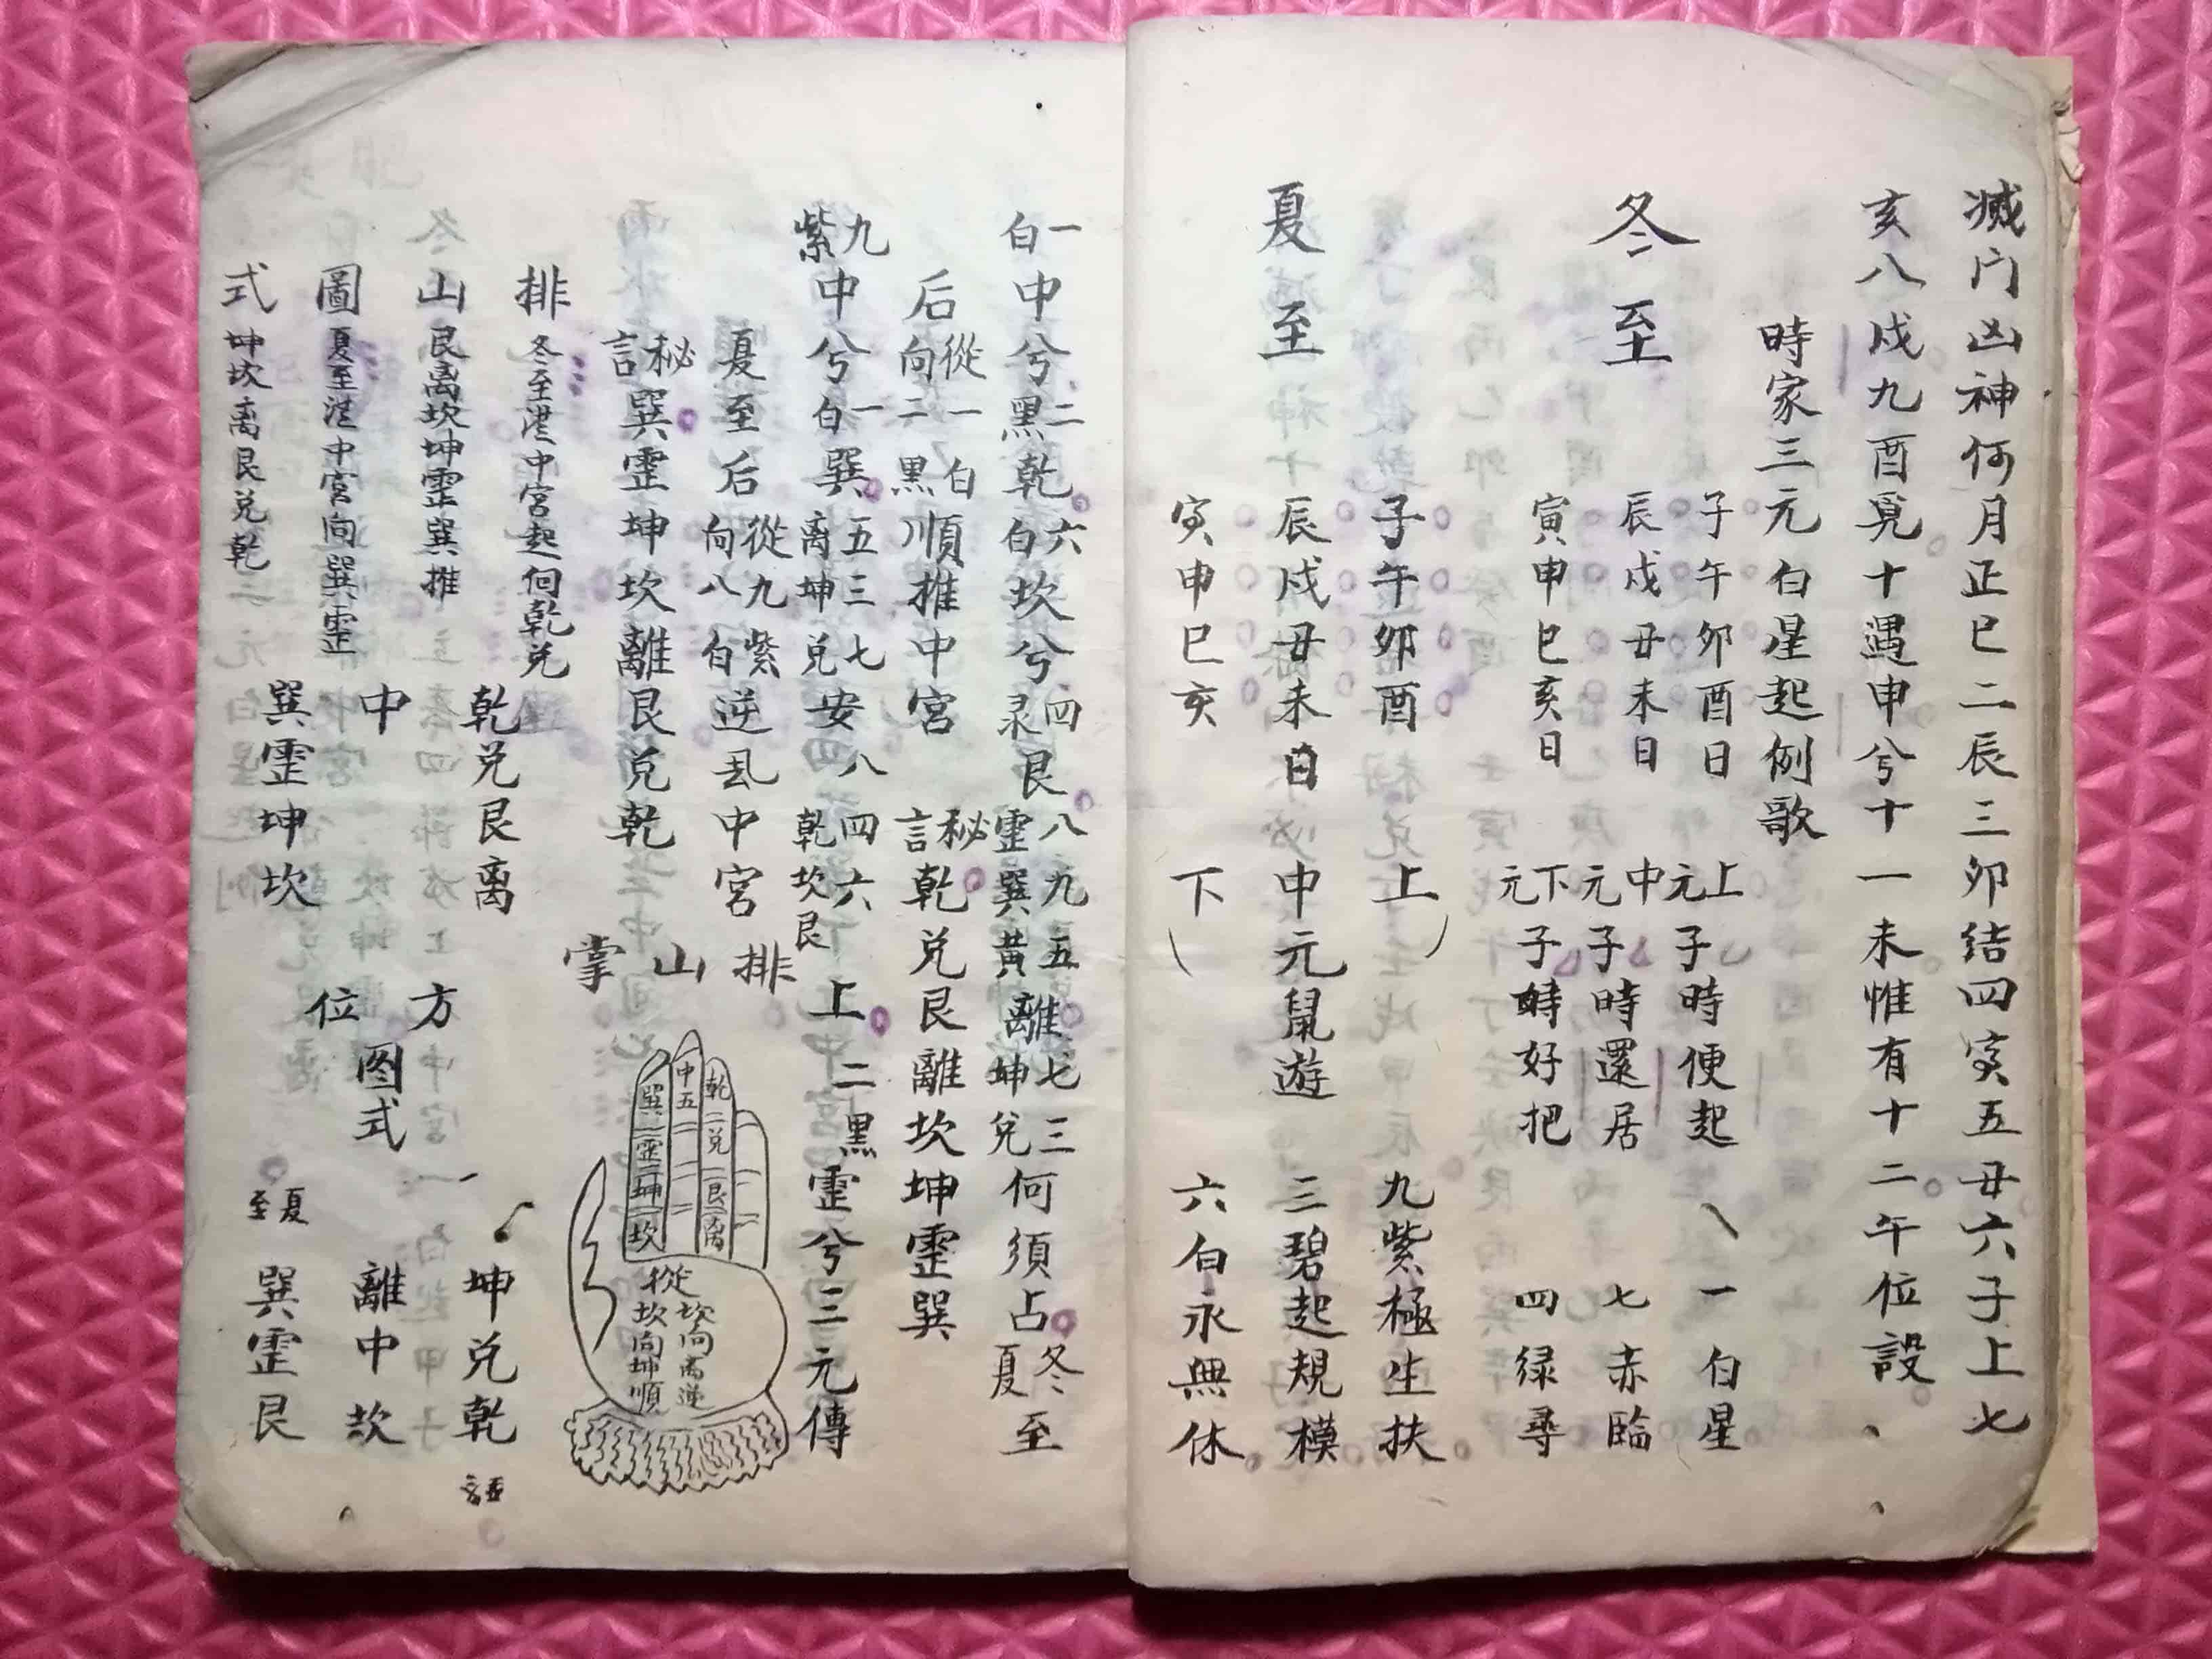 滅门凶神何月正巳二辰三卯结四寅五丑六子上七
亥八戌九酉覓十遇申兮十一未惟有十二午位設
時家三元白星起例歌
冬至
子午卯酉日 上元子時便起 一白星
辰戌丑未日 中元子時還居 七赤臨
寅申巳亥日 下元子時好把 四绿尋
夏至
子午卯酉 上 九紫極生扶
辰戌丑未日 中元鼠遊 三碧起規模
寅申巳亥 下 六白永無休
一白中兮二黑乾六白坎兮四录艮八霊九巽五黃離七坤三兌何須占冬夏至
后從一白向二黑順推中宮 秘言乾兌艮離坎坤霊巽
九紫中兮一白巽五离三坤七兌安八乾四坎六艮上二黑霊兮三元傳
夏至后從九紫向八白逆乱中宮
秘言巽霊坤坎離艮兌乾
排山掌
乾兌艮离
中五
巽霊坤坎
從坎向离逆
坎向坤順
排冬至從中宮起向乾兌
山艮离坎坤霊巽推
圖夏至從中宮向巽霊
式坤坎离艮兌乾
乾兌艮离
中
巽霊坤坎
方位图式
坤兌乾
離中坎
巽霊艮
夏至
冬至